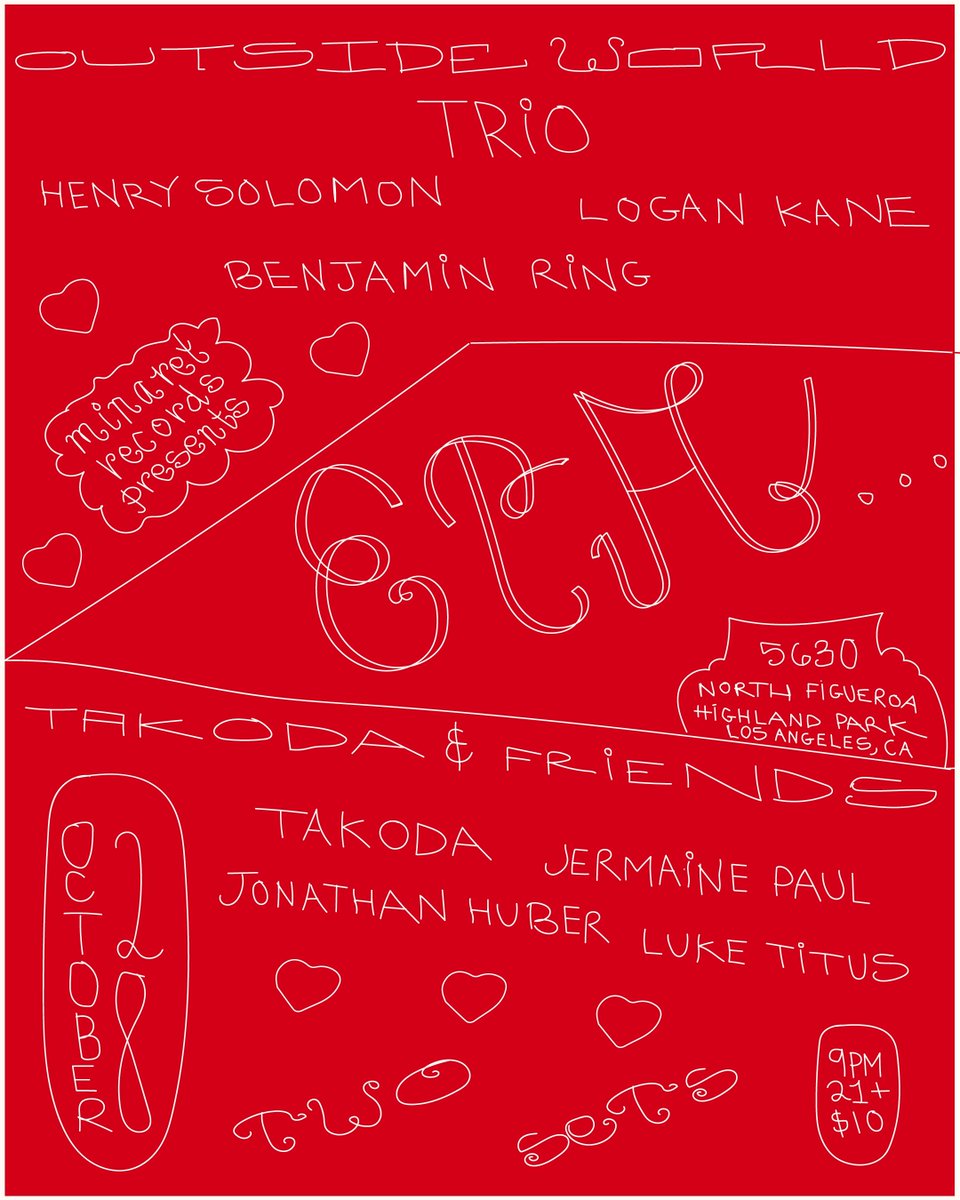 OUTSIDE WORLD
TRiO
HENRY SOLOMON
LOGAN KANE
BENJAMiN RiNG
minaret
records
presents
ETA...
5630
NORTH FiGUEROA
HiGHLAND PARK
LOS ANGELES, CA
TAKODA & FRiENDS
TAKODA
JERMAiNE PAUL
JONATHAN HUBER
LUKE TiTUS
OCTOBER
28
TWO SETS
9PM
21+
$10